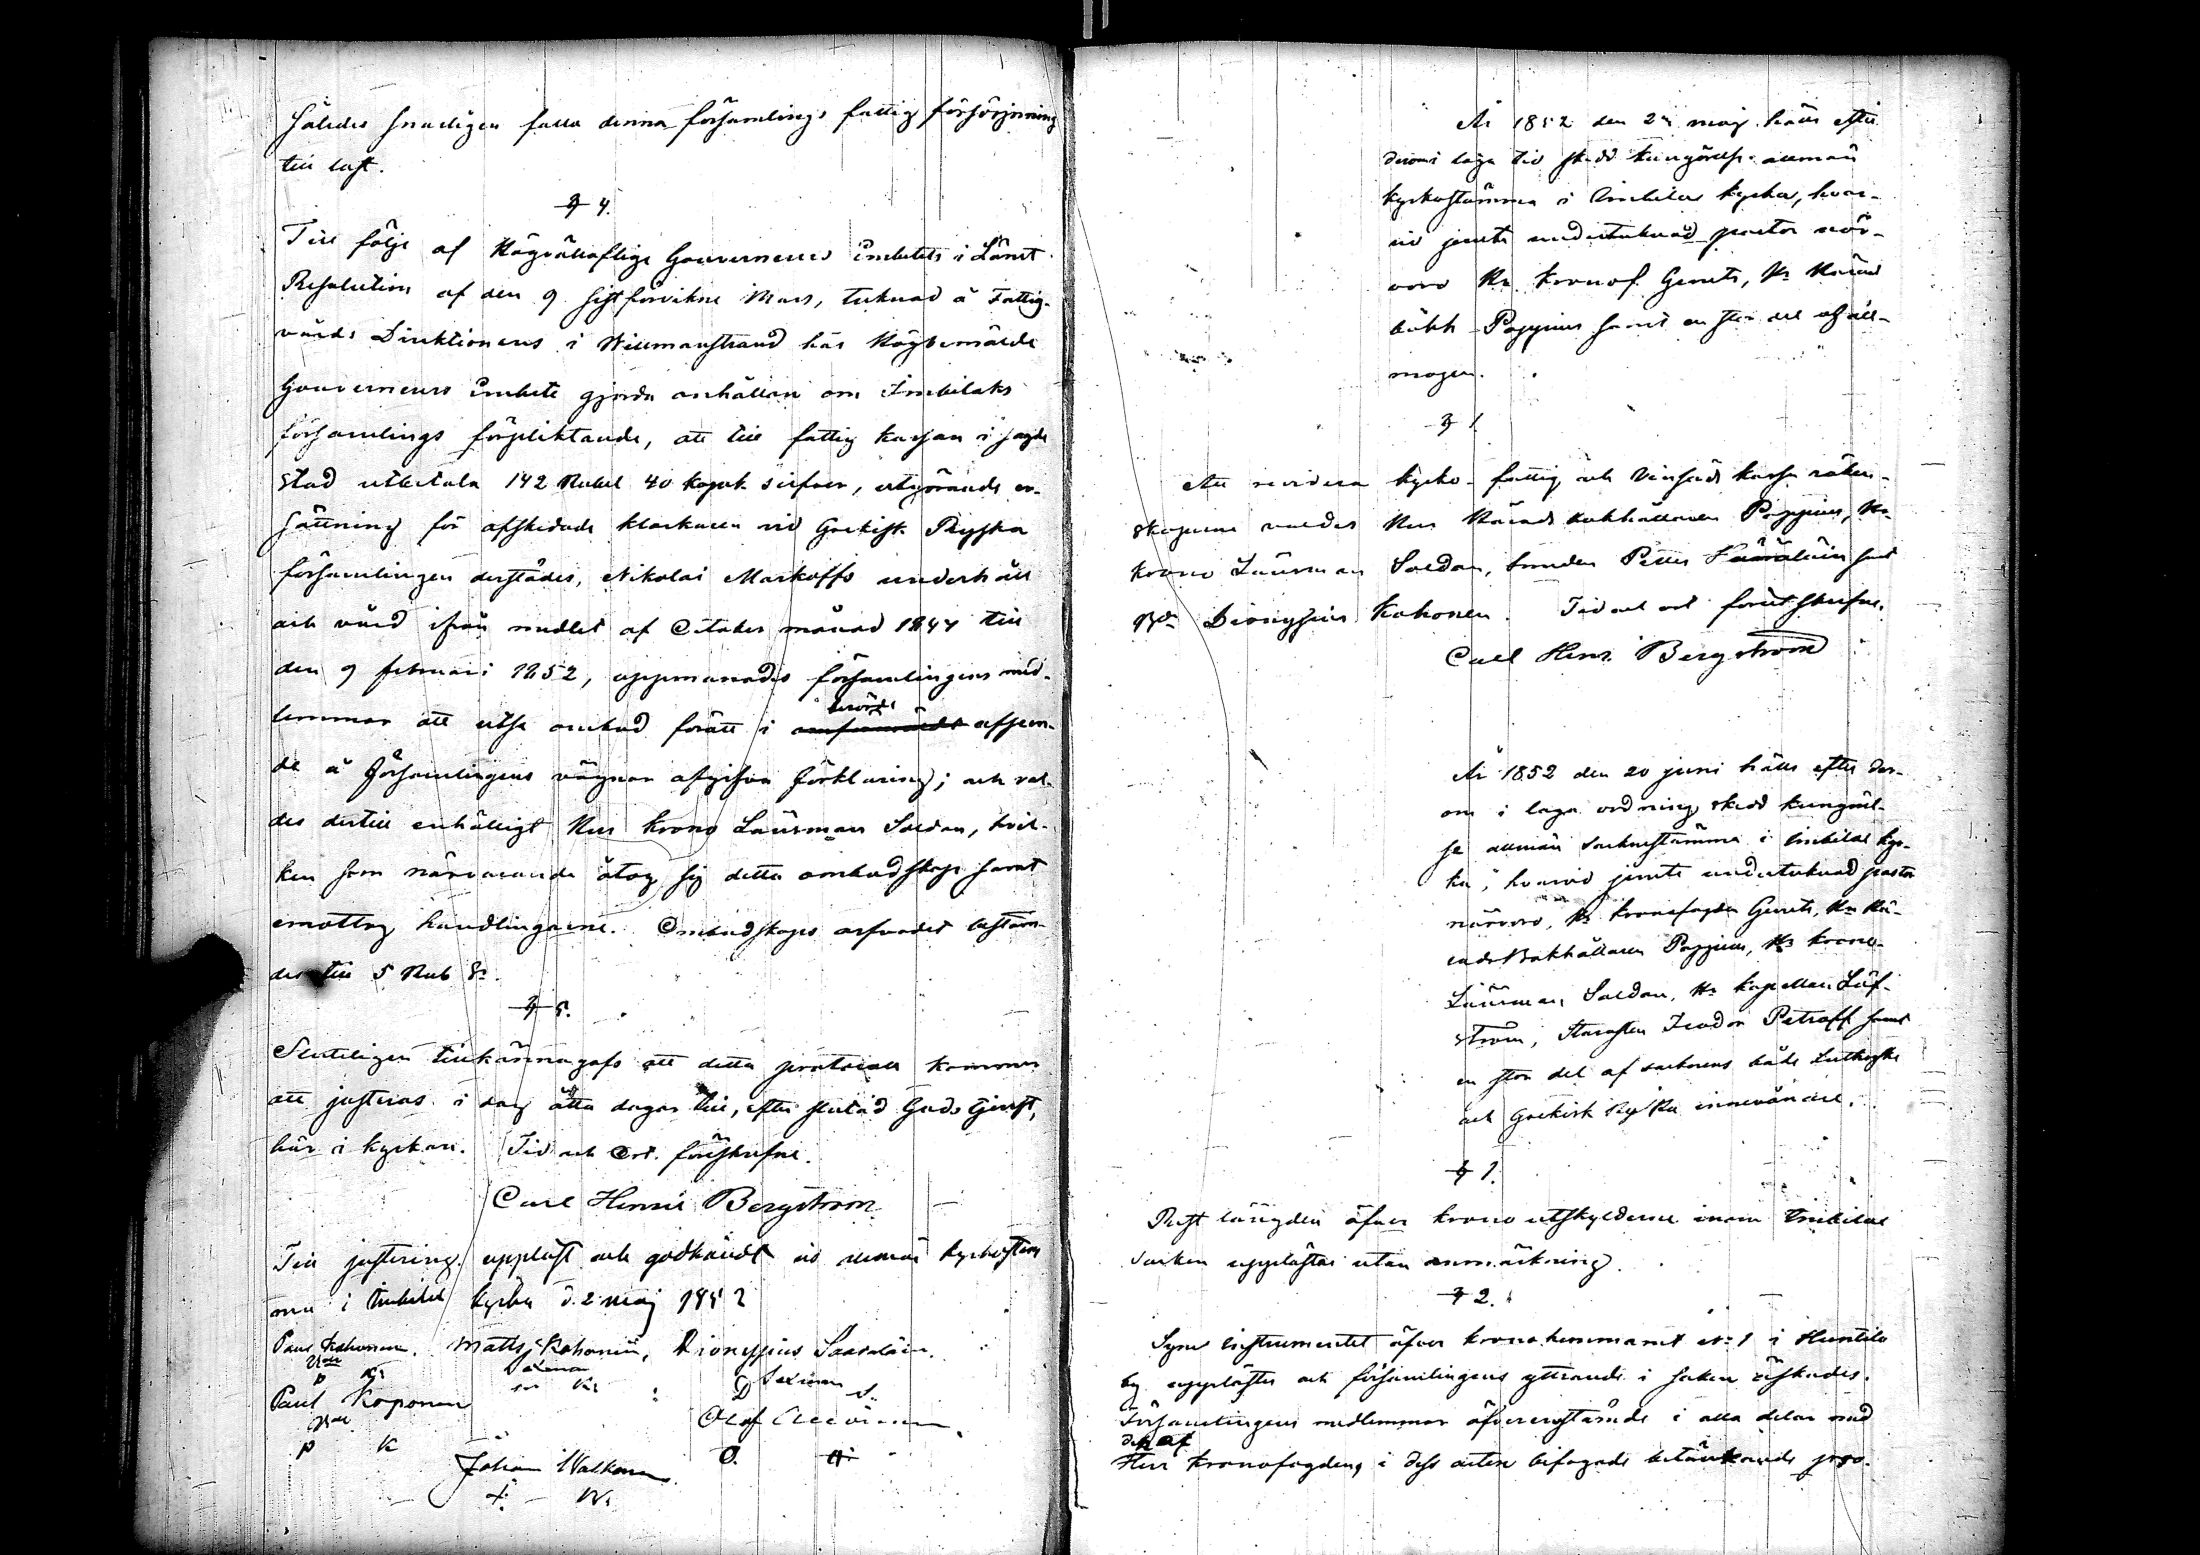 således snarligen falla denna församlings fattig försörjning
till last.
§ 4.
Till följe af Högvälloflige Gouverneurs Embetets i Länet
Resolution af den 9 sistförvikne Mars, tecknad å Fattig-
vårds Direktionens i Willmanstrand hos Högbemälde
Gouverneurs Embete gjorda anhållan om Imbilaks
församlings förpliktande, att till fattig kassan i sagde
stad utbetala 142 Rubel 40 kopek silfver, utgörande er-
sättning för afskedade klockaren vid Grekisk Ryska
församlingen derstädes, Nikolai Markoffs underhåll
och vård ifrån medlet af October månad 1847 till
den 9 februari 1852, uppmanades församlingens med-
lemmar att utse ombud föratt i berörde afseen-
de å Församlingens vägnar afgifva förklaring; och val-
des dertill enhälligt Herr Krono Länsman Soldan, hvil-
ken som närvarande åtog sig detta ombudskap samt
emottog handlingarne. Ombudskaps arfvodet bestäm-
des till 5 Rub Sr.
§ 5.
Slutligen tillkännagafs att detta protocoll kommer
att justeras i dag åtta dagar till, efter slutad Guds tjenst,
här i kyrkan. Tid och Ort förrskrefne.
Carl Henric Bergström
Till justering uppläst och godkändt vid allmän kyrkostäm
ma i Imbilax kyrka d. 2 maj 1852
Paul Kahonen. Matts Kohonen, Dionysius Saarelain.
P K. Sexman K. Sexman D S.
Paul Koponen Olof
P K O.
Johan Walkonen
J. W.
År 1852 den 2 maj hölls efter
derom i laga tid skedd kungörelse allmän
kyrkostämma i Imbilax kyrka, hvar-
vid jemte undertecknad pastor när-
voro Hr Kronof. Gerets, Hr Härad
bokh Poppius samt en stor del af all-
mogen.
§ 1
Att revidera kyrko- fattig och kassa räken-
skaperne valdes Herr Härads bokhållaren Poppius, Hr
Krono Länsman Soldan, bonden Petter samt
Dionysius Kokonen. Tid och ort förutskrefne.
Carl Henr. Bergström
År 1852 den 20 juni hölls efter der-
om i laga ordning skedd kungörel-
se allmän sockenstämma i Imbilax kyr-
ka, hvarvid jemte undertecknad pastor
närvoro, Hr Kronofogden Gerets, Hr Hä-
radsBokhållaren Poppius, Hr krono-
Länsman Soldan, Hr kapellan Löf-
ström, Starosten Feodor Petroff samt
en stor del af sockenens både Lutherske
och Grekisk Ryska innevånare.
§ 1.
Rest längden öfver krono utskylderne inom Imbilax
socken upplästes utan anmärkning.
§ 2.
Syne instrumentet öfver kronohemmanet No 1 i Huntila
by upplästes och församlingens yttrande i saken äskades.
Församlingens medlemmar öfverensstämde i alla delar med
det af
Herr Kronofogden, i dess acten bifogade betänkande pro-